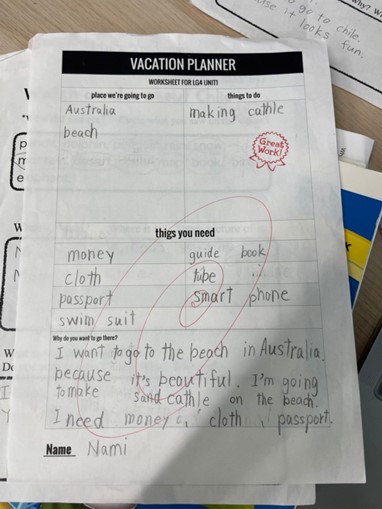 to go to chile
it looks fun.
VACATION PLANNER
WORKSHEET FOR LG4 UNIT1
place we're going to go
things to do
Australia
making cathle
beach
Great Work!
thigs you need
money
guide book
cloth
tube
passport
smart phone
swim suit
Why do you want to go there?
I want to go to the beach in Australia.
because it's beautiful. I'm going
to make sand cathle on the beach.
I need money, cloth, passport.
Name Nami